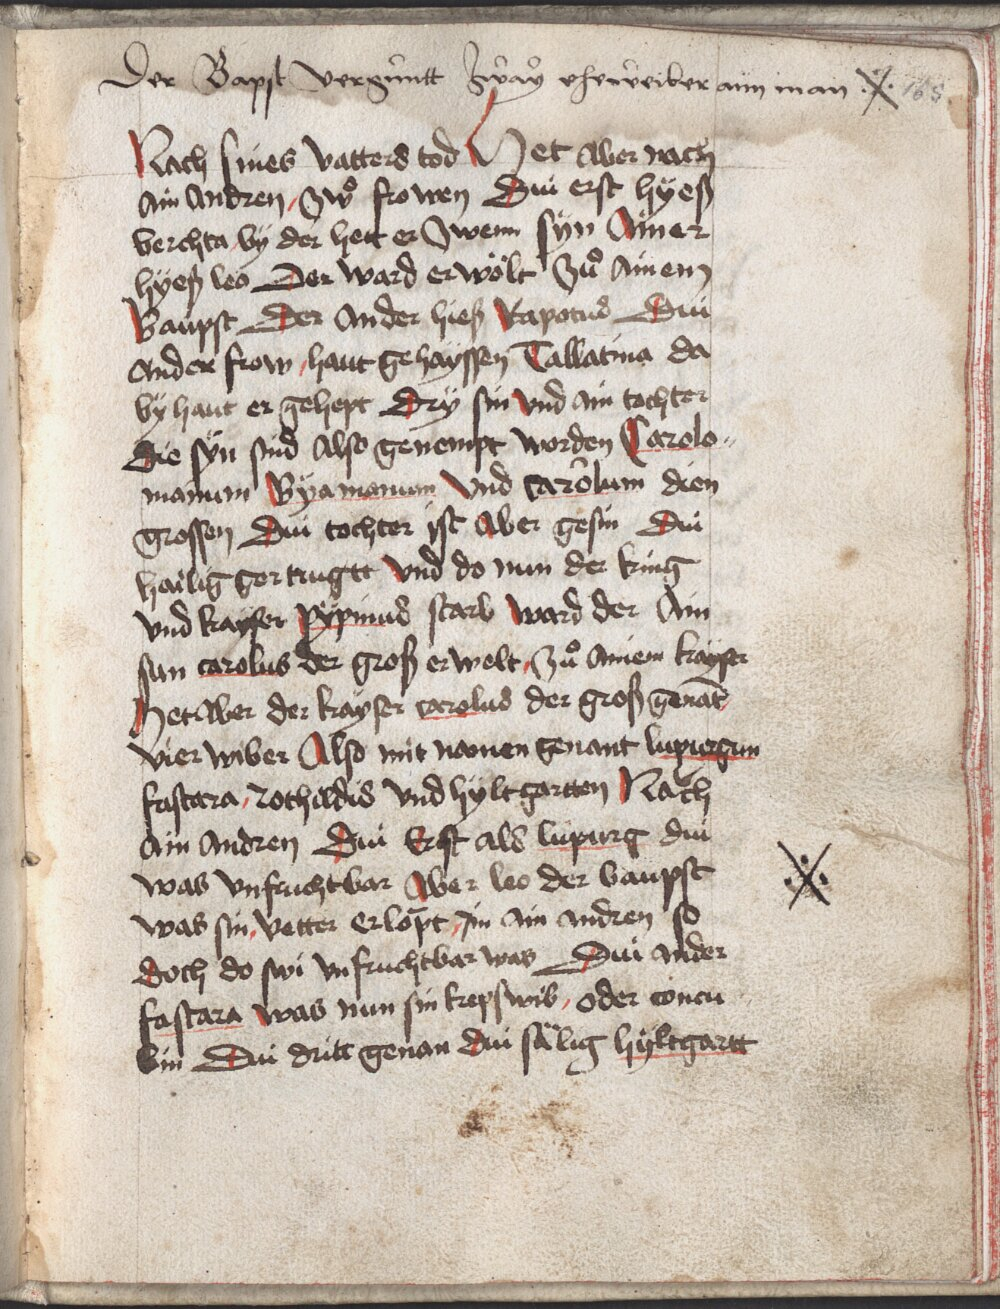 Der Bapst vergüntt Zway eheweiber ainn man ·X· 165
Nach sines vatters tod Het aber nach
ain andren, zwo frowen Dui erst hyeß
berchta, by der hett er zwenn syn Ainer
hyeß leo Der ward erwölt zů ainem
Baupst Der ander hieß Rapotus Dui
ander frow, haut gehayssen Tallatina da
by haut er gehept Dry sin vnd ain tochter
die syn sind also genempt worden Carolo-
manum Byamanum vnd carolum dien
grossen Dui tochter yst aber gesin Dui
hailig gertrugtt vnd do nun der king
vnd kayser Pypinus starb ward der Ain
sun carolus der groß erwelt, zů ainem kayser
Het aber der kayser carolus der groß genāt,
vier wiber Also mit namen genant lupurgan
fastara, Rothildis vnd hyltgartten Nach
ain andren Dui Erst als lupurg dui
was vnfruchtbar Aber leo der baupst
was sin, vetter erlopt, im ain andren so
doch do swi vnfruchtbar was Dui ander
fastara was nun sin kepswib, oder concu
bin Dui dritt genan dui sälig hyltgartt